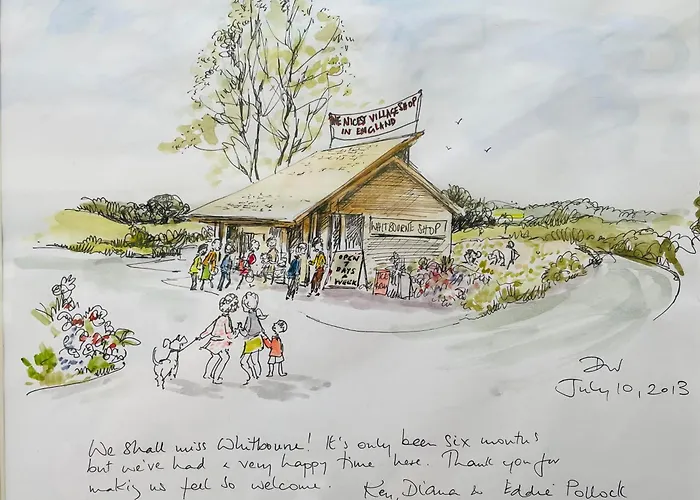 THE NICEST VILLAGE SHOP
IN ENGLAND
WHITBOURNE SHOP
OPEN
7 DAYS
WEEK
DW
July 10, 2013
We shall miss Whitbourne! It's only been six months
but we've had a very happy time here. Thank you for
making us feel so welcome. Ken, Diana & Eddie Pollock